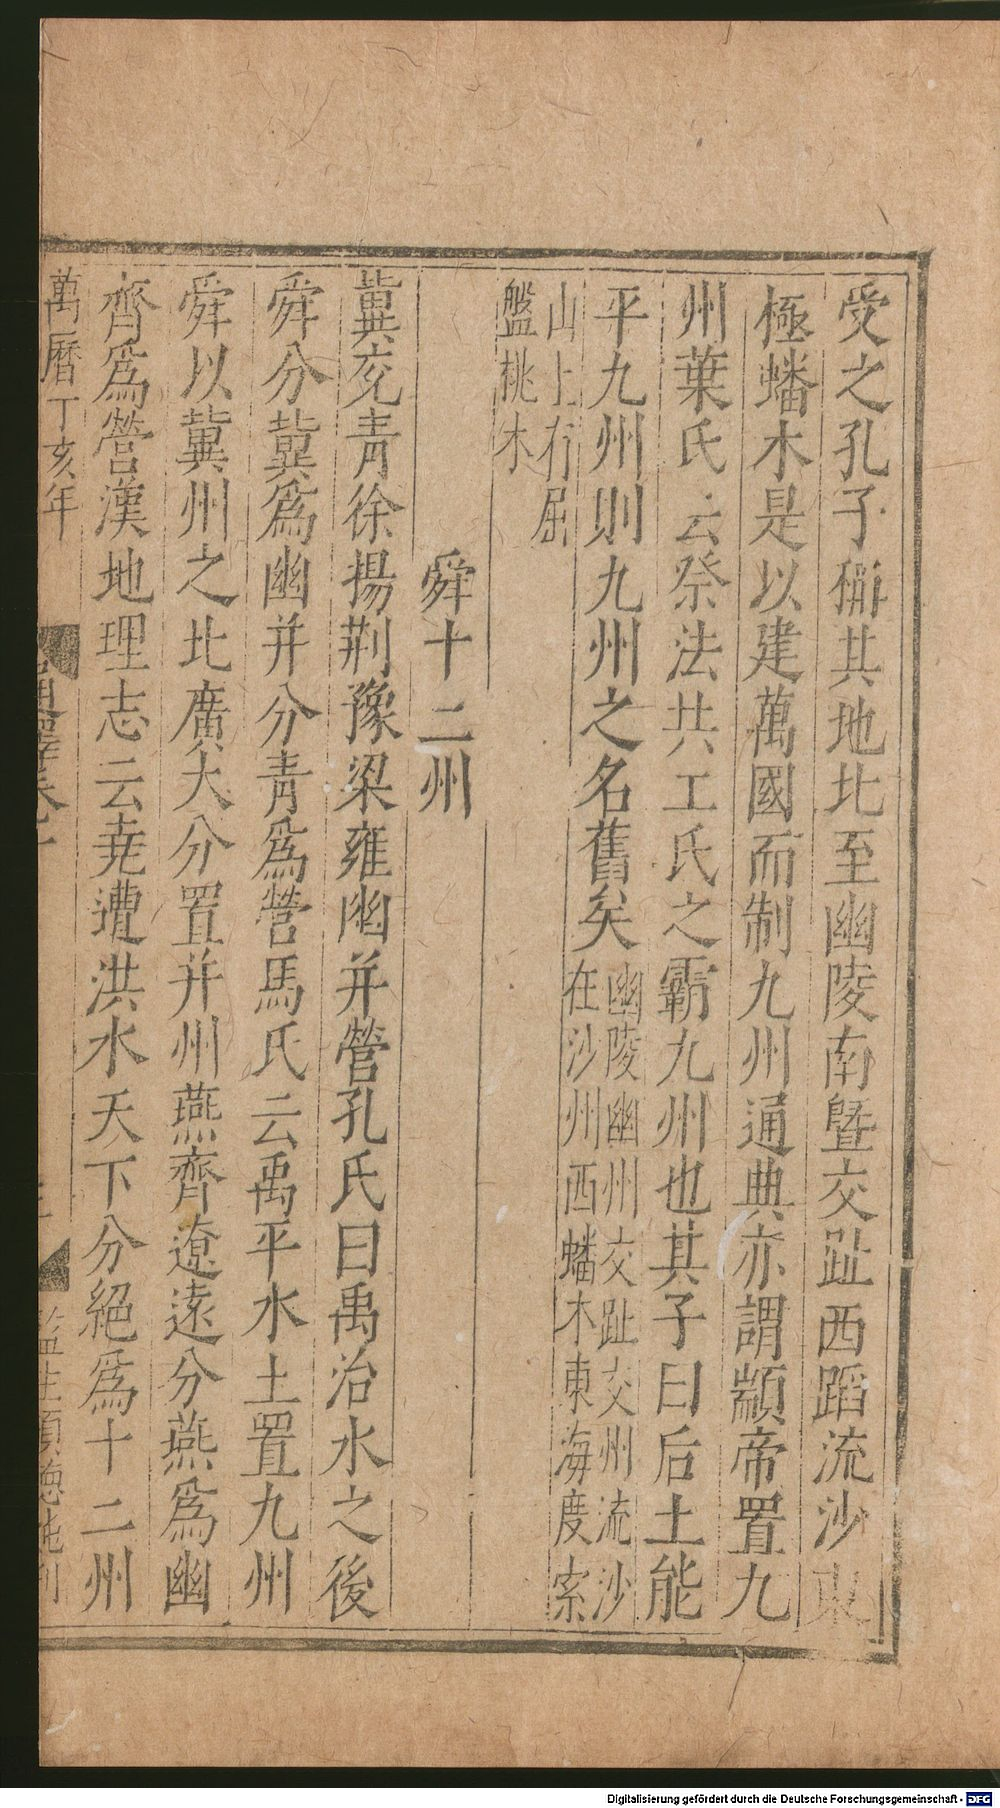 受之孔子稱其地北至幽陵南曁交趾西蹈流沙東
極蟠木是以建萬國而制九州通典亦謂顓帝置九
州葉氏云祭法共工氏之霸九州也其子曰后土能
平九州則九州之名舊矣
幽陵幽州交趾交州流沙
在沙州西蟠木東海度索
山上有屈
盤桃木
舜十二州
冀兗青徐揚荆豫梁雍幽并營孔氏曰禹治水之後
舜分冀爲幽并分青爲營馬氏云禹平水土置九州
舜以冀州之北廣大分置并州燕齊遼遠分燕爲幽
齊爲營漢地理志云堯遭洪水天下分絕爲十二州
萬曆丁亥年
通釋卷一
監生
Digitalisierung gefördert durch die Deutsche Forschungsgemeinschaft - DFG